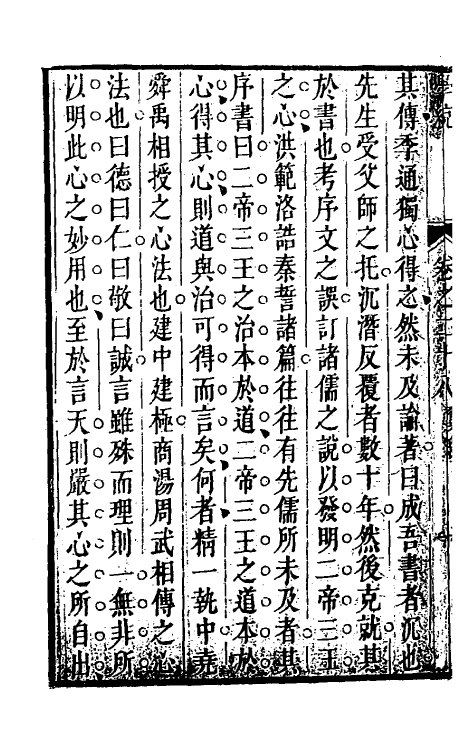 其傳季通獨心得之然未及論著曰成吾書者沉也
先生受父師之托沉潛反覆者數十年然後克就其
於書也考序文之誤訂諸儒之說以發明二帝三王
之心洪範洛誥秦誓諸篇往往有先儒所未及者其
序書曰二帝三王之治本於道二帝三王之道本於
心得其心則道與治可得而言矣何者精一執中堯
舜禹相授之心法也建中建極商湯周武相傳之心
法也曰德曰仁曰敬曰誠言雖殊而理則一無非所
以明此心之妙用也至於言天則嚴其心之所自出